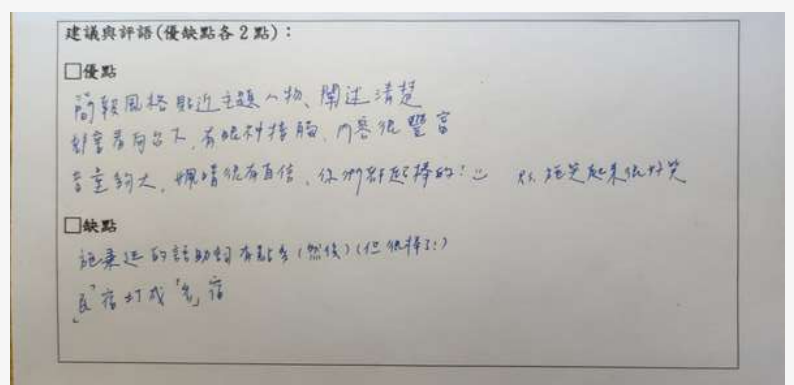 建議與評語(優缺點各2點):
□優點
簡報風格貼近主題人物、闡述清楚
都會看向台下,有眼神接觸,內容很豐富
音量夠大,姵晴很有自信,你們都超棒的!:) P.S. 施笑起來很好笑
□缺點
施秉廷的語助詞有點多(然後)(但很棒了!)
「民」宿打成「名」宿